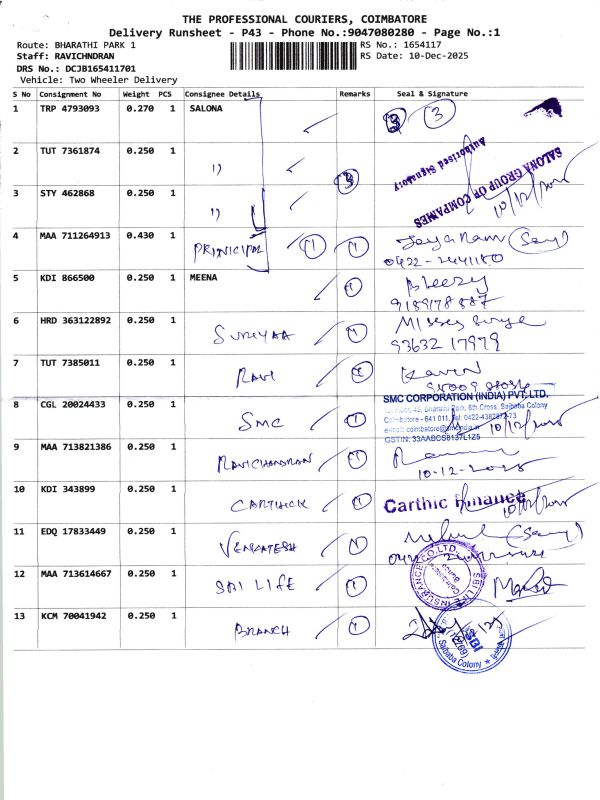 THE PROFESSIONAL COURIERS, COIMBATORE
Delivery Runsheet - P43 - Phone No.:9047080280 - Page No.:1
Route: BHARATHI PARK 1
RS No.: 1654117
Staff: RAVICHNDRAN
RS Date: 10-Dec-2025
DRS No.: DCJB165411701
Vehicle: Two Wheeler Delivery
S No Consignment No Weight PCS Consignee Details Remarks Seal & Signature
1 TRP 4793093 0.270 1 SALONA 3 3
2 TUT 7361874 0.250 1 ") 3
Authorised Signatory
SALONA GROUP OF COMPANIES
3 STY 462868 0.250 1 ")
10/12/2025
4 MAA 711264913 0.430 1 PRINICIPAL 1 1 Jayaram
0422-2441180
5 KDI 866500 0.250 1 MEENA 1
6 HRD 363122892 0.250 1 SURIYAA 1
93632 17979
7 TUT 7385011 0.250 1 RAVI 1 Kavin
8 CGL 20024433 0.250 1 SMC 1
SMC CORPORATION (INDIA) PVT. LTD.
Bharathi Park, 6th Cross, Saibaba Colony
Coimbatore - 641 011
GSTIN: 33AABCS8137L1Z5
10/12/2025
9 MAA 713821386 0.250 1 RAVICHANDRAN 1
10-12-2025
10 KDI 343899 0.250 1 CARTHICK 1 Carthic Finance
10/12/2025
11 EDQ 17833449 0.250 1 VENKATESH 1
12 MAA 713614667 0.250 1 SBI LIFE 1
SBI LIFE INSURANCE CO.LTD.
13 KCM 70041942 0.250 1 BRANCH 1
SBI
Saibaba Colony